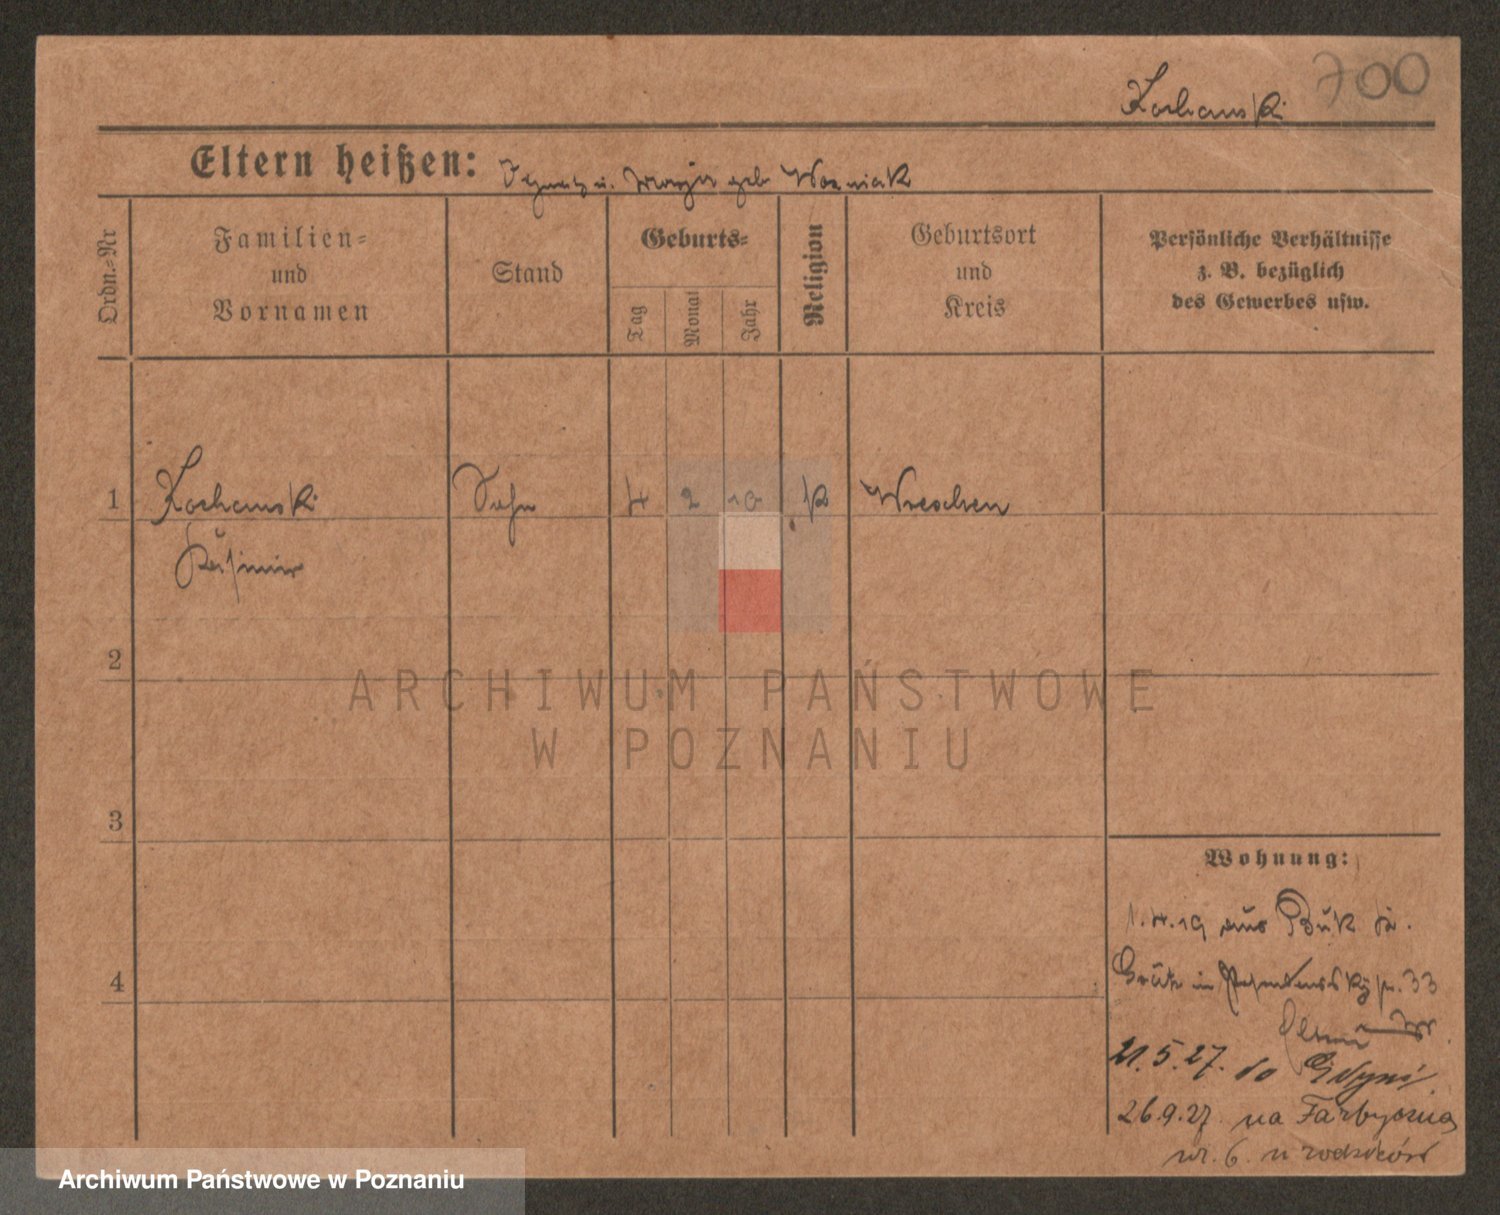 700
Kochanski
Eltern heißen: Ignatz u. geb. Wozniak
Ordn.=Nr
Familien=
und
Vornamen
Stand
Geburts=
Tag
Monat
Jahr
Religion
Geburtsort
und
Kreis
Persönliche Verhältnisse
z. B. bezüglich
des Gewerbes usw.
1 Kochanski Sohn 4 2 10 k Wreschen
Kasimir
2
3
4
ARCHIWUM PAŃSTWOWE
W POZNANIU
Wohnung:
1.4.19 aus Buk
Grätz 33
21.5.27. do Gdyni
26.9.27. na Farbyczną
nr. 6. u rodziców
Archiwum Państwowe w Poznaniu